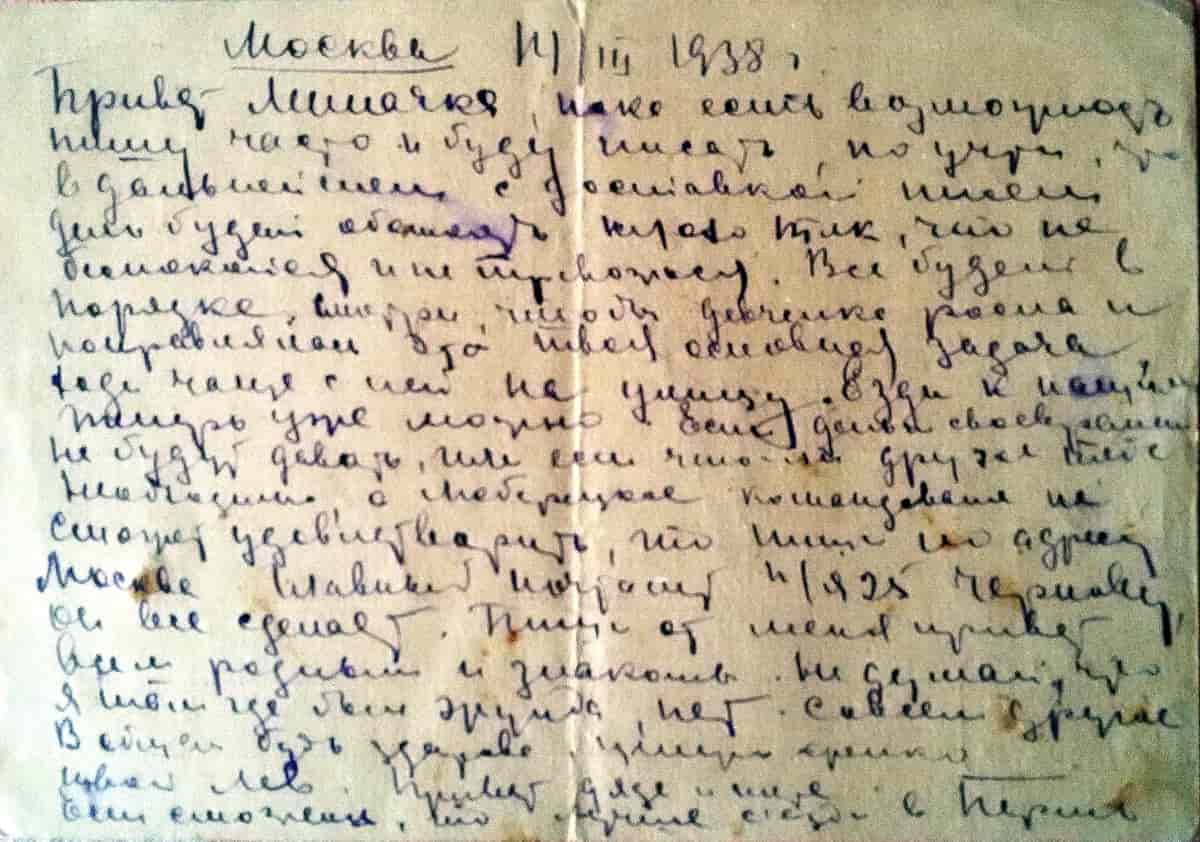 Москва 14/III 1938 г.
Привет Мимочка, пока есть возможность
пишу часто и буду писать, но учти, что
в дальнейшем с доставкой писем
дело будет обстоять так, что не
беспокойся и не тревожься. Все будет в
порядке, смотри, чтобы девченка росла и
поправлялась это твоя основная задача,
ходи чаще с ней на улицу. Езди к нашим
теперь уже можно. Если деньги своевременно
не будут давать, или если что-ли другое тебе
необходимо а Люберецкое командование не
сможет удовлетворить, то пиши по адресу
Москва Главный почтамт п/я 925 Чернову,
он все сделает. Пиши от меня привет
всем родным и знакомым. Не думай, что
я там где был друг, нет. Совсем другое
В общем будь здорова, целую крепко
твой Лев. Привет дяде и
Если сможешь, то лучше съезди в Пермь